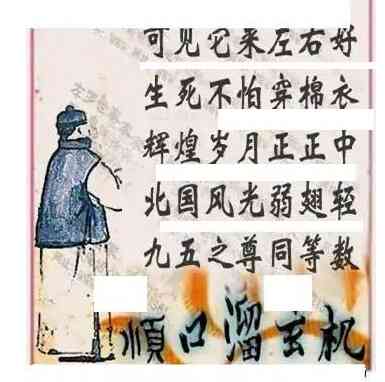 可见它来左右好
生死不怕穿棉衣
辉煌岁月正正中
北国风光弱翅轻
九五之尊同等数
順口溜玄机